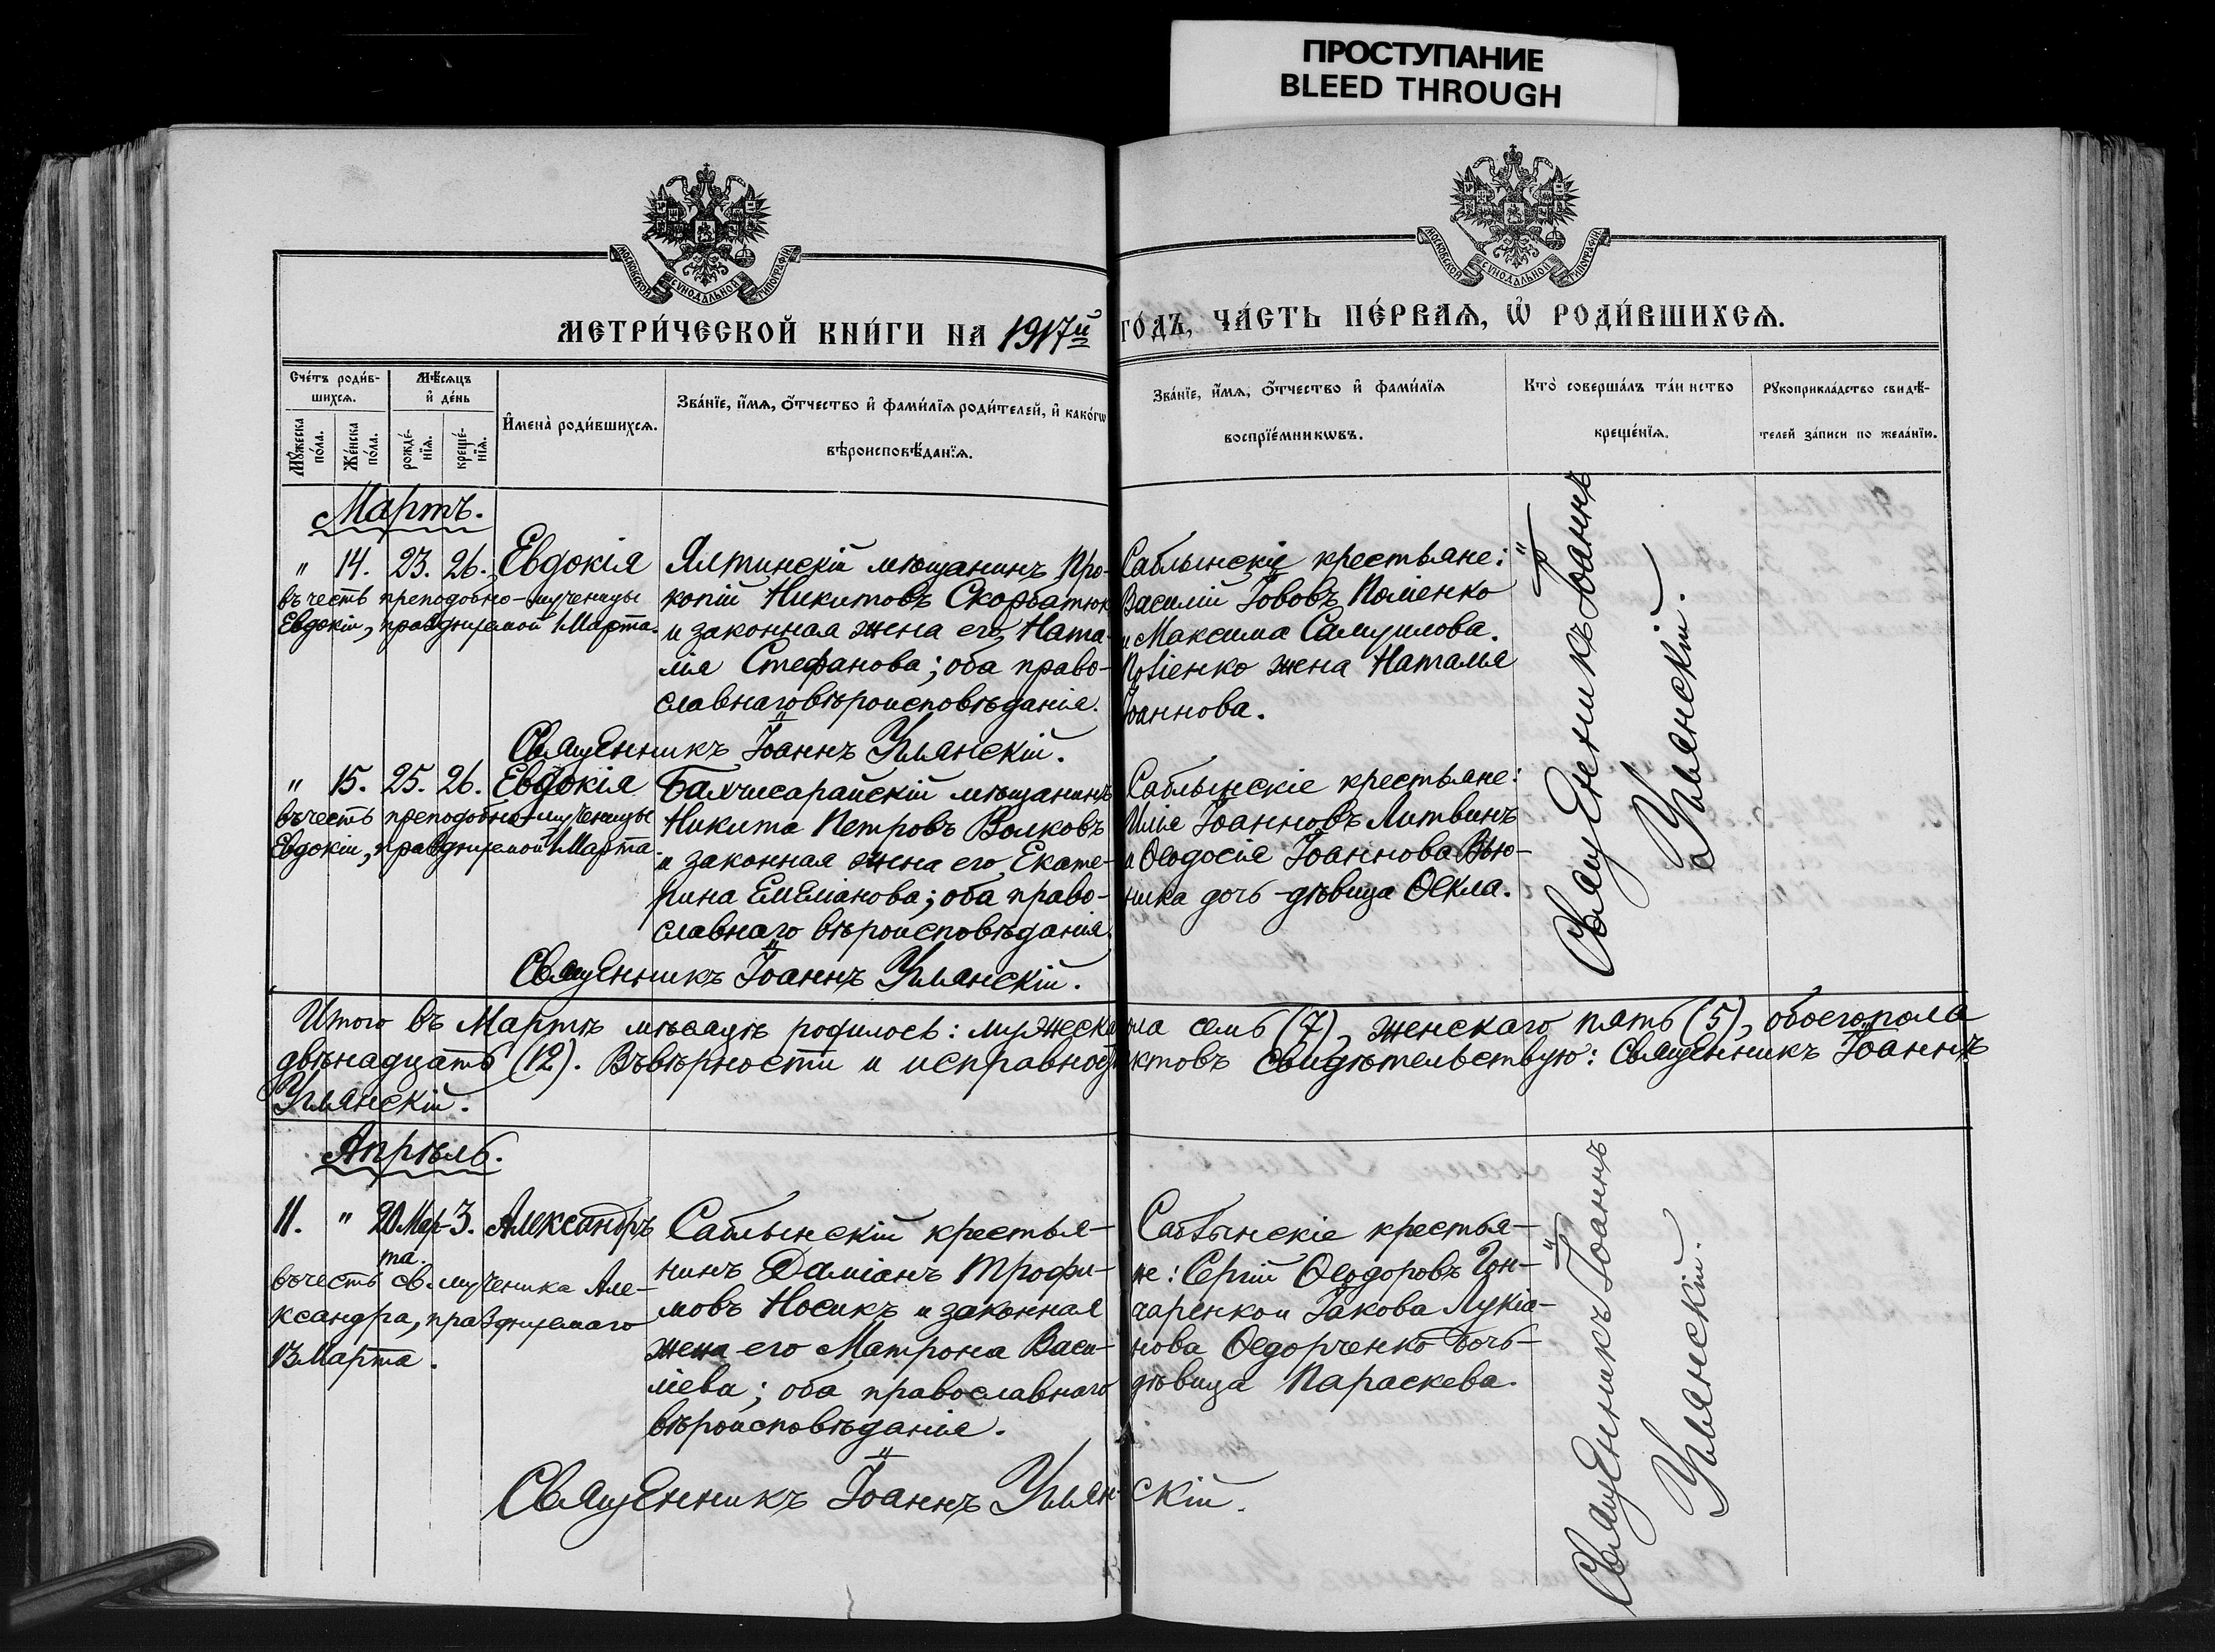 ПРОСТУПАНИЕ
BLEED THROUGH
МОСКОВСКОЙ СѴНОДАЛЬНОЙ ТИПОГРАФІИ
МОСКОВСКОЙ СѴНОДАЛЬНОЙ ТИПОГРАФІИ
МЕТРИ́ЧЕСКОЙ КНИ́ГИ НА 1917й
ГО́ДЪ, ЧА́СТЬ ПЕ́РВАѦ, Ѡ҆ РОДИ́ВШИХСѦ.
Сче́тъ роди́в-
шихсѧ.
Мѣ́сѧцъ
и҆ де́нь
Мꙋ́жеска
по́ла.
Же́нска
по́ла.
рожде́-
нїѧ.
креще́-
нїѧ.
И҆мена̀ роди́вшихсѧ.
Зва́нїе, и҆́мѧ, ѻ҆́тчество и҆ фами́лїѧ роди́телей, и҆ како́гѡ
вѣроисповѣ́данїѧ.
Зва́нїе, и҆́мѧ, ѻ҆́тчество и҆ фами́лїѧ
воспрїе́мникѡвъ.
Кто̀ соверша́лъ та́инство
креще́нїѧ.
Рꙋкоприкла́дство свидѣ́-
телей за́писи по жела́нїю.
Мартъ.
" 14. 23. 26. Евдокія
въ честь преподобно-мученицы
Евдокіи, празднуемой 1 Марта.
Ялтинскій мѣщанинъ Про-
копій Никитовъ Скорбатюк
и законная жена его, Ната-
лія Стефанова; оба право-
славнаго вѣроисповѣданія.
Саблынскіе крестьяне:
Василій Іововъ
и Максима Самуилова
жена Наталія
Іоаннова.
Священникъ Іоаннъ Углянскій.
Священникъ Іоаннъ
Углянскій.
" 15. 25. 26. Евдокія
въ честь преподобно-мученицы
Евдокіи, празднуемой 1 Марта
Бахчисарайскій мѣщанинъ
Никита Петровъ Волковъ
и законная жена его, Екате-
рина Емеліанова; оба право-
славнаго вѣроисповѣданія.
Саблынскіе крестьяне:
Илія Іоанновъ Литвинъ
и Ѳеодосія Іоаннова Вью-
ника дочь-дѣвица Ѳекла.
Священникъ Іоаннъ Углянскій.
Итого въ Мартѣ мѣсяцѣ родилось: мужеска пола семь (7), женскаго пять (5), обоего пола
двѣнадцать (12). Въ вѣрности и исправности актовъ свидѣтельствую: Священникъ Іоаннъ
Углянскій.
Апрѣль.
11. " 20 Мар- 3. Александръ
та.
въ честь св. мученика Але-
ксандра, празднуемаго
13 Марта.
Саблынскій крестья-
нинъ Даміанъ Трофи-
мовъ Носикъ и законная
жена его Матрона Васи-
ліева; оба православнаго
вѣроисповѣданія.
Саблынскіе крестья-
не: Сергій Ѳеодоровъ Гон-
чаренко и Іакова Лукіа-
нова Ѳедорченко дочь-
дѣвица Параскева.
Священникъ Іоаннъ Углянскій.
Священникъ Іоаннъ
Углянскій.